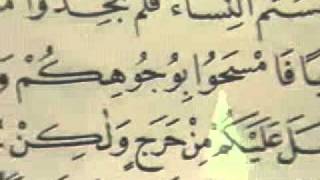 النِّسَاءَ فَلَمْ تَجِدُوا
فَامْسَحُوا بِوُجُوهِكُمْ وَ
عَلَيْكُمْ مِنْ حَرَجٍ وَلَٰكِنْ